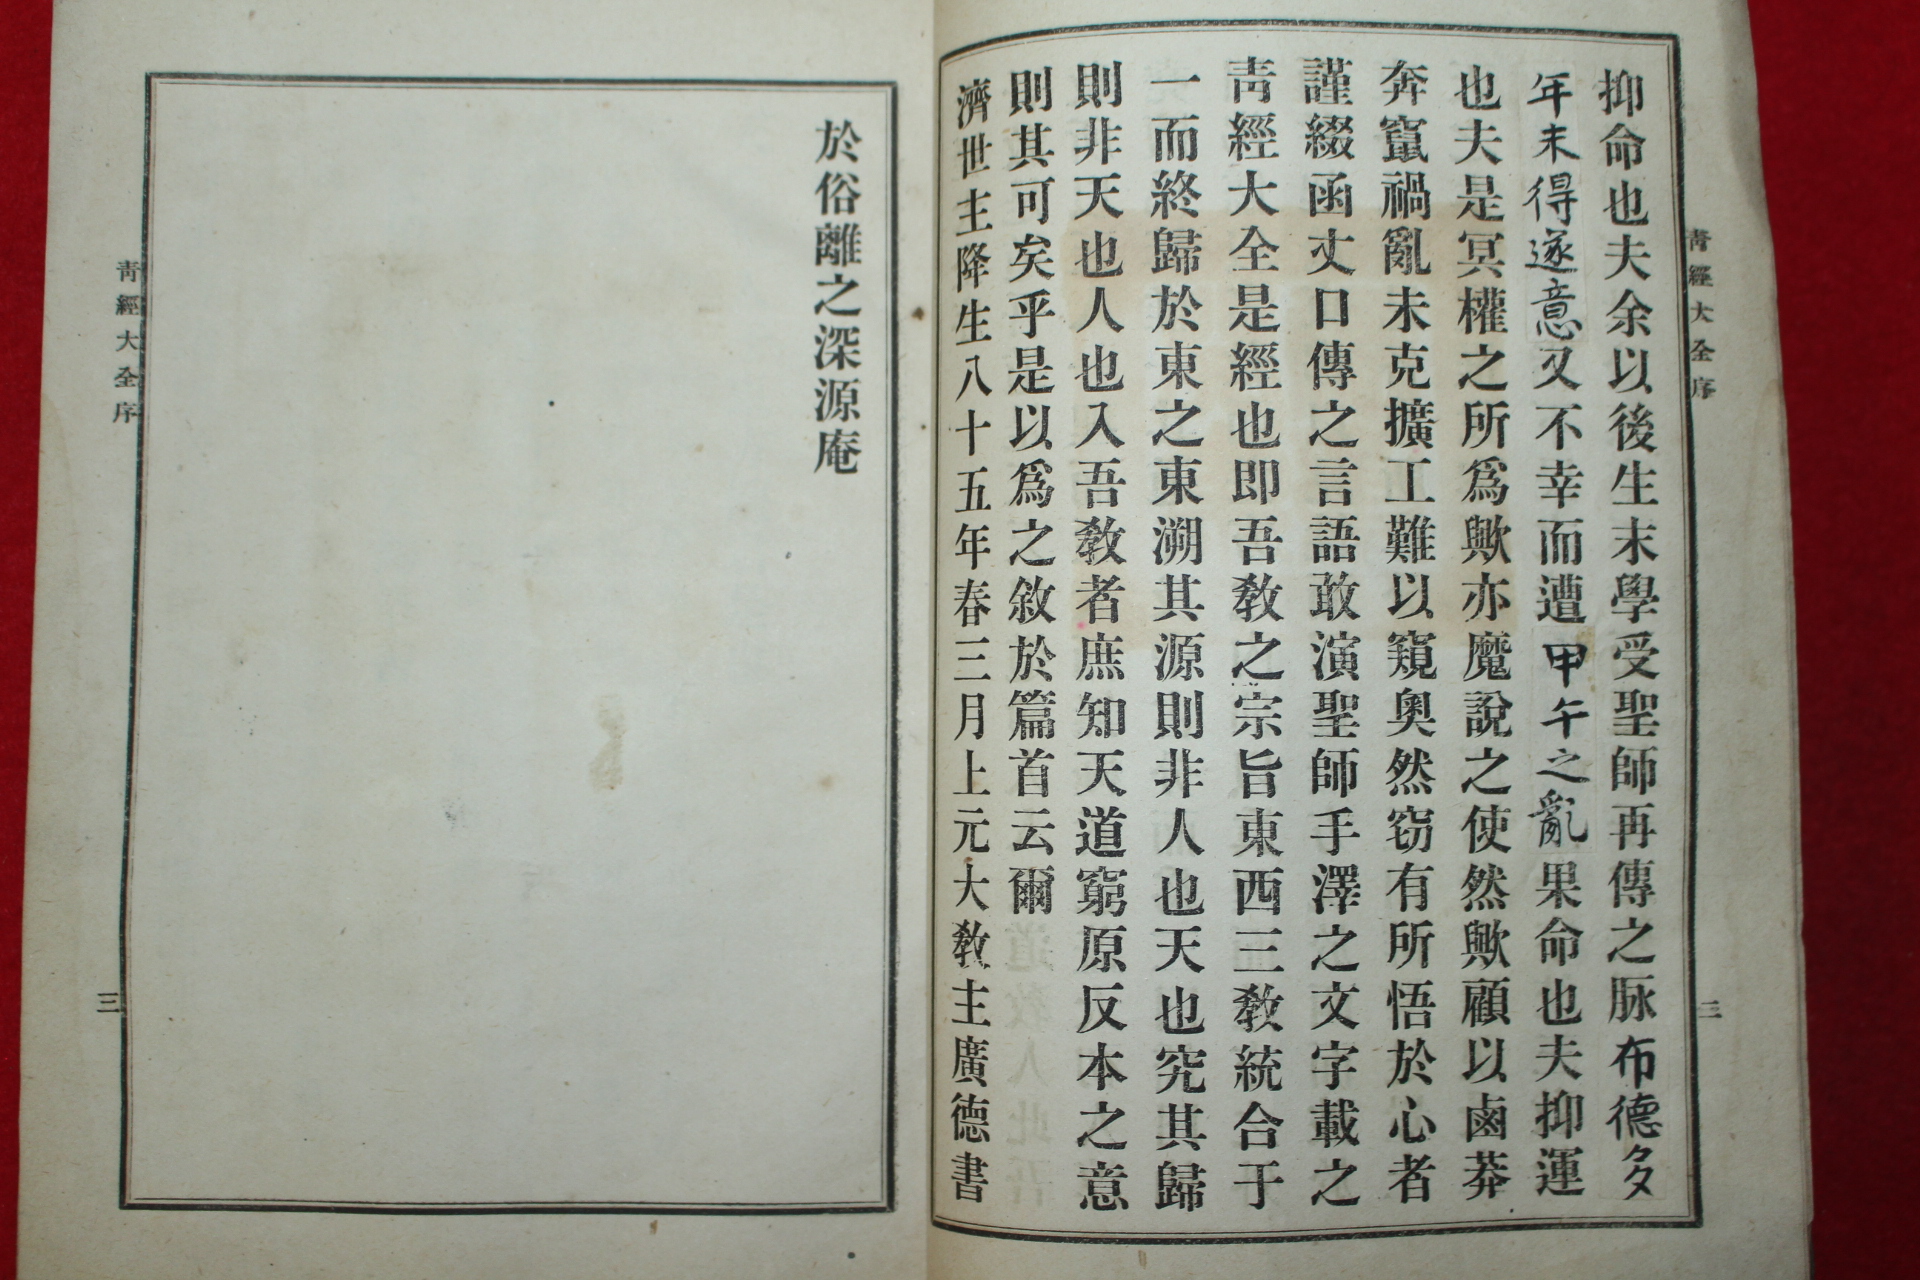 靑經大全序
三
抑命也夫余以後生末學受聖師再傳之脉布德多
年未得遂意又不幸而遭甲午之亂果命也夫抑運
也夫是冥權之所爲歟亦魔說之使然歟顧以鹵莽
奔竄禍亂未克擴工難以窺奧然窃有所悟於心者
謹綴函丈口傳之言語敢演聖師手澤之文字載之
靑經大全是經也即吾敎之宗旨東西三敎統合于
一而終歸於東之東溯其源則非人也天也究其歸
則非天也人也入吾敎者庶知天道窮原反本之意
則其可矣乎是以爲之敘於篇首云爾
濟世主降生八十五年春三月上元大敎主廣德書
於俗離之深源庵
靑經大全序
三